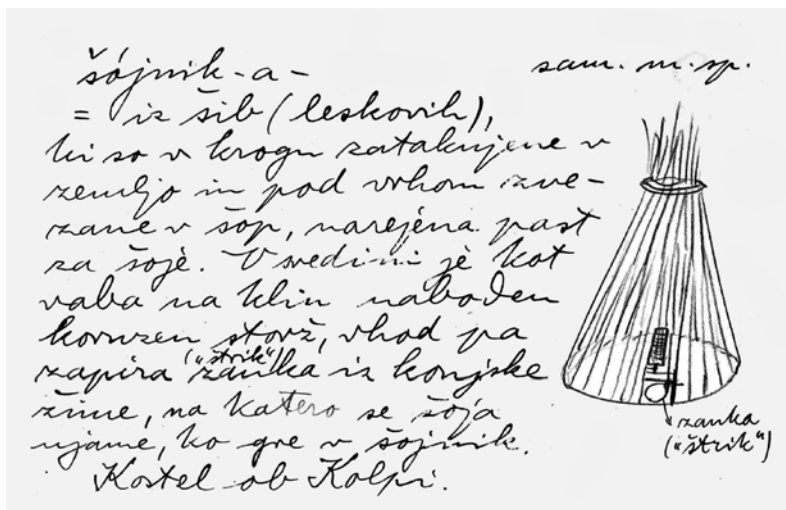 šójnik -a -
sam. m. sp.
= iz šib (leskovih),
ki so v krogu zataknjene v
zemljo in pod vrhom zve-
zane v šop, narejena past
za šoje. V sredini je kot
vaba na klin naboden
koruzen storž, vhod pa
zapira ("štrik") zanka iz konjske
žime, na katero se šoja
ujame, ko gre v šojnik.
Kostel ob Kolpi.
zanka
("štrik")